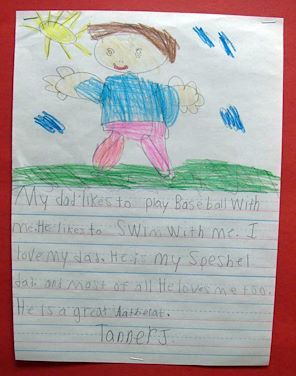 My dad likes to play Baseball With
me. He likes to SWim With me. I
love my dad. He is my Speshel
dad. and most of all He loves me too.
He is a great
Tanner J.